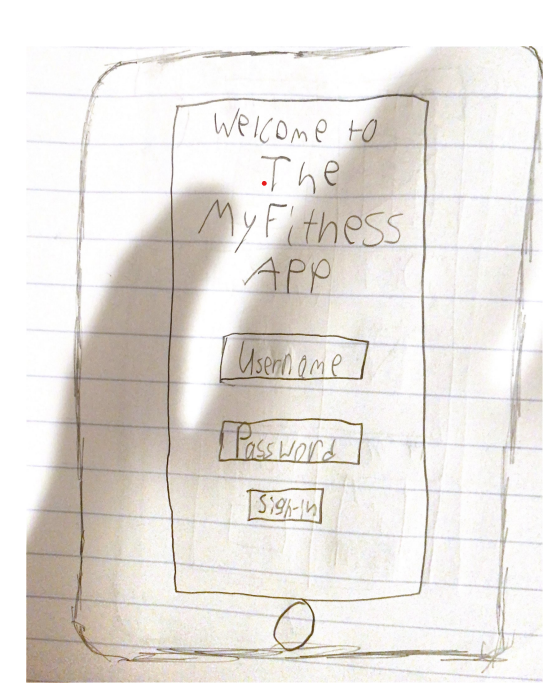 Welcome to
The
MyFitness
App
Username
Password
Sign-in